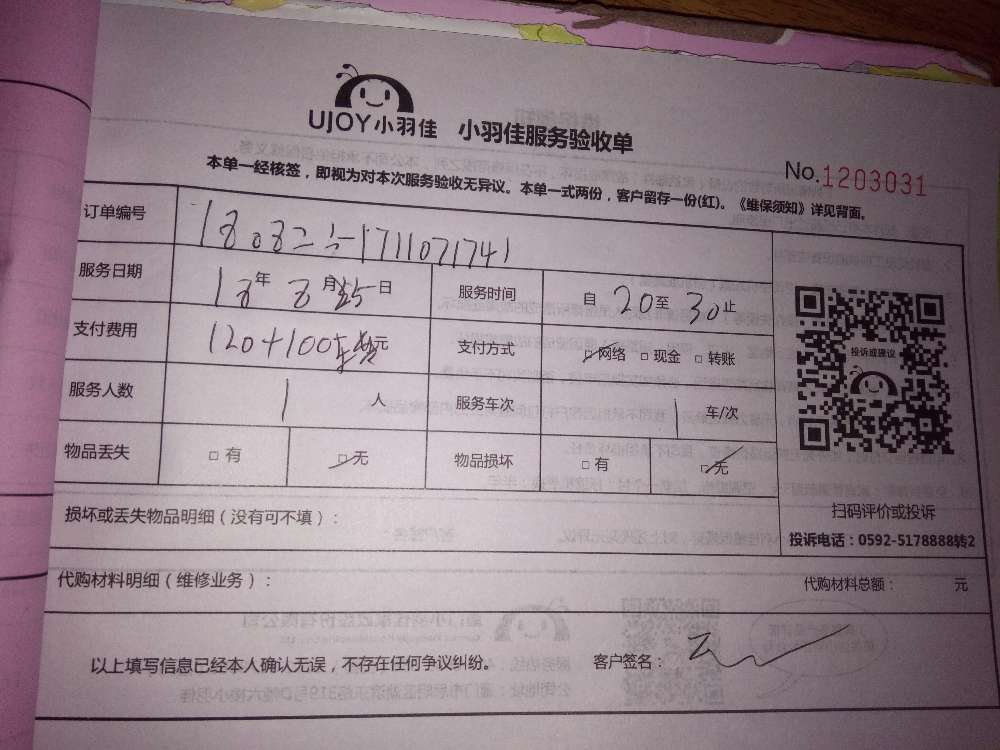 UJOY小羽佳 小羽佳服务验收单
No.1203031
本单一经核签，即视为对本次服务验收无异议。本单一式两份，客户留存一份(红)。《维保须知》详见背面。
订单编号 1711071741
服务日期 18年8月25日 服务时间 自20至30止
支付费用 120+100车费元 支付方式 网络 现金 转账
服务人数 1人 服务车次 1车/次
物品丢失 有 无 物品损坏 有 无
投诉或建议
扫码评价或投诉
投诉电话：0592-5178888转2
损坏或丢失物品明细（没有可不填）：
代购材料明细（维修业务）： 代购材料总额： 元
以上填写信息已经本人确认无误，不存在任何争议纠纷。 客户签名：